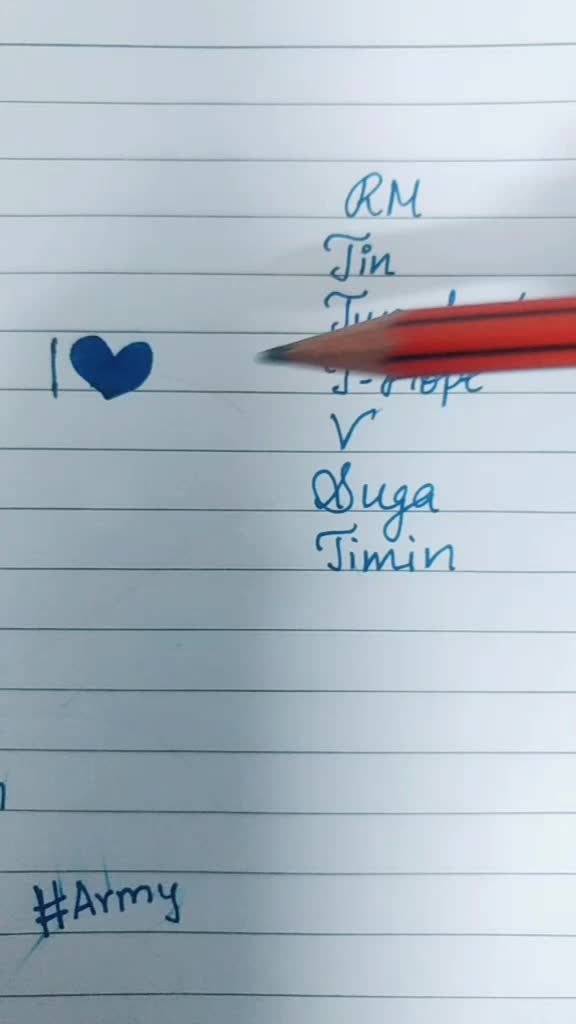 RM
Jin
I ♥
J-Hope
V
Suga
Jimin
#Army